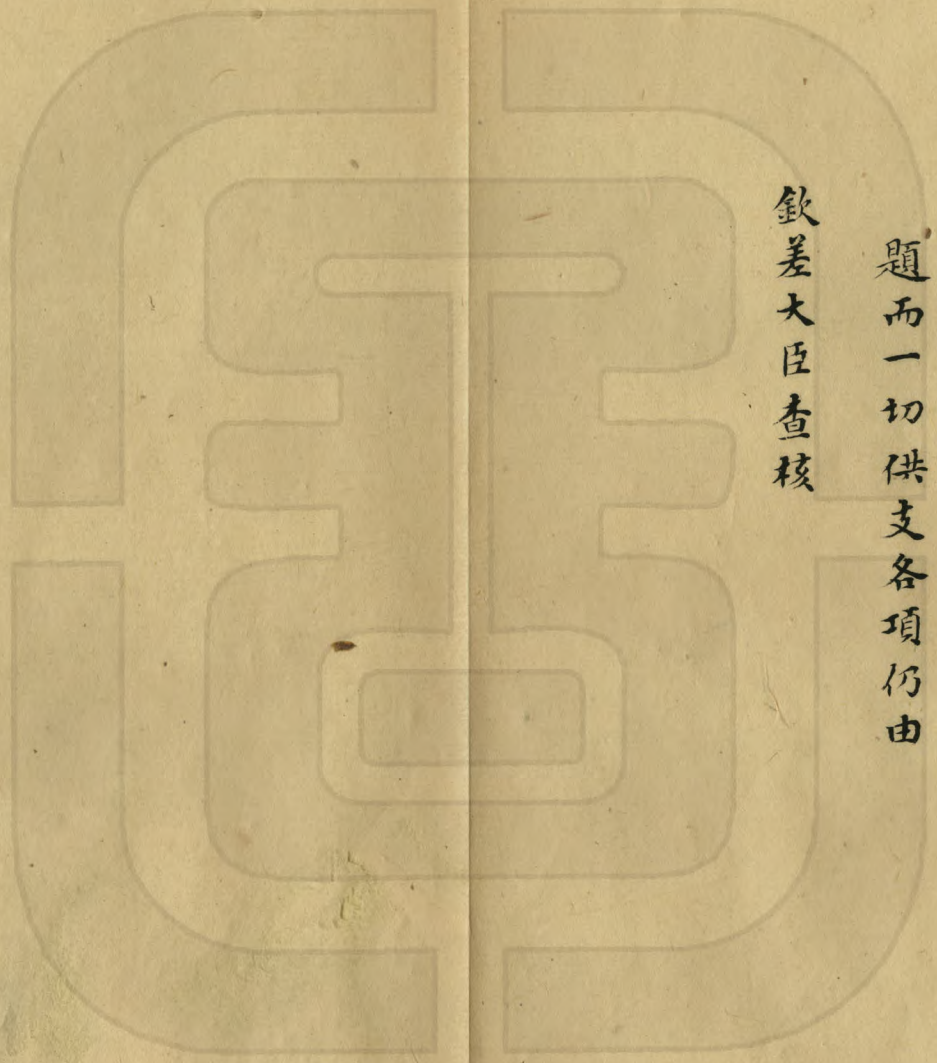 題而一切供支各項仍由
欽差大臣查核